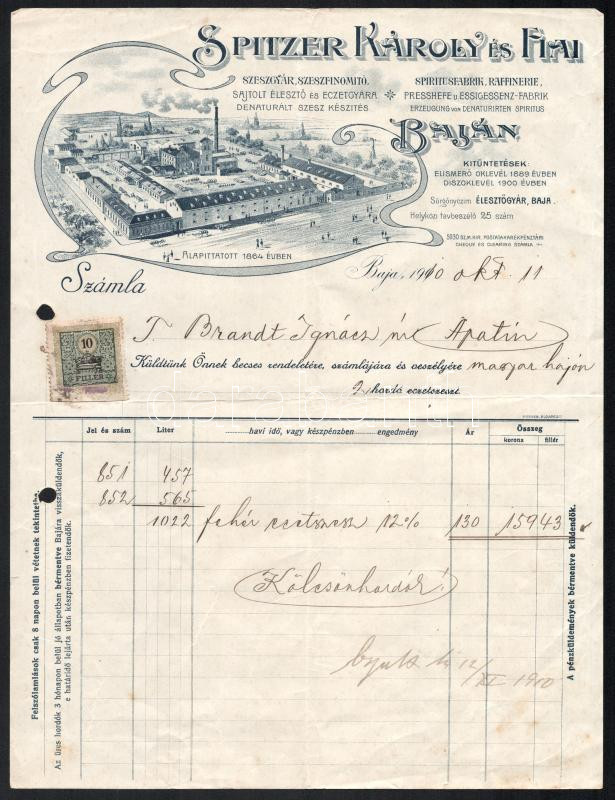 SPITZER KÁROLY ÉS FIAI
SZESZGYÁR, SZESZFINOMITÓ,
SAJTOLT ÉLESZTŐ ÉS ECZETGYÁRA
DENATURÁLT SZESZ KÉSZITÉS
SPIRITUSFABRIK, RAFFINERIE,
PRESSHEFE U. ESSIGESSENZ-FABRIK
ERZEUGUNG VON DENATURIRTEN SPIRITUS
BAJÁN
KITÜNTETÉSEK:
ELISMERŐ OKLEVÉL 1889 ÉVBEN
DISZOKLEVÉL 1900 ÉVBEN
Sürgönyczim ÉLESZTŐGYÁR, BAJA.
Helyközi távbeszélő 25 szám
5930 SZ. M. KIR. POSTATAKARÉKPÉNZTÁRI
CHEQUE ÉS CLEARING SZÁMLA
ALAPITTATOTT 1864 ÉVBEN
Baja, 1910 okt. 11
Számla
10
FILLÉR
T. Brandt Ignácz úr Apatin
Küldtünk Önnek becses rendeletére, számlájára és veszélyére magyar hajón
2 hordó eczetszeszt.
Jel és szám Liter havi idő, vagy készpénzben engedmény Ár Összeg
korona fillér
851 457
852 565
1022 fehér 12% 130 159 43
Kölcsönhordók!
12/XI 1910
Felszólamlások csak 8 napon belül vétetnek tekintetbe.
Az üres hordók 3 hónapon belül jó állapotban bérmentve Bajára visszaküldendők,
e határidő lejárta után készpénzben fizetendők.
A pénzküldemények bérmentve küldendők.